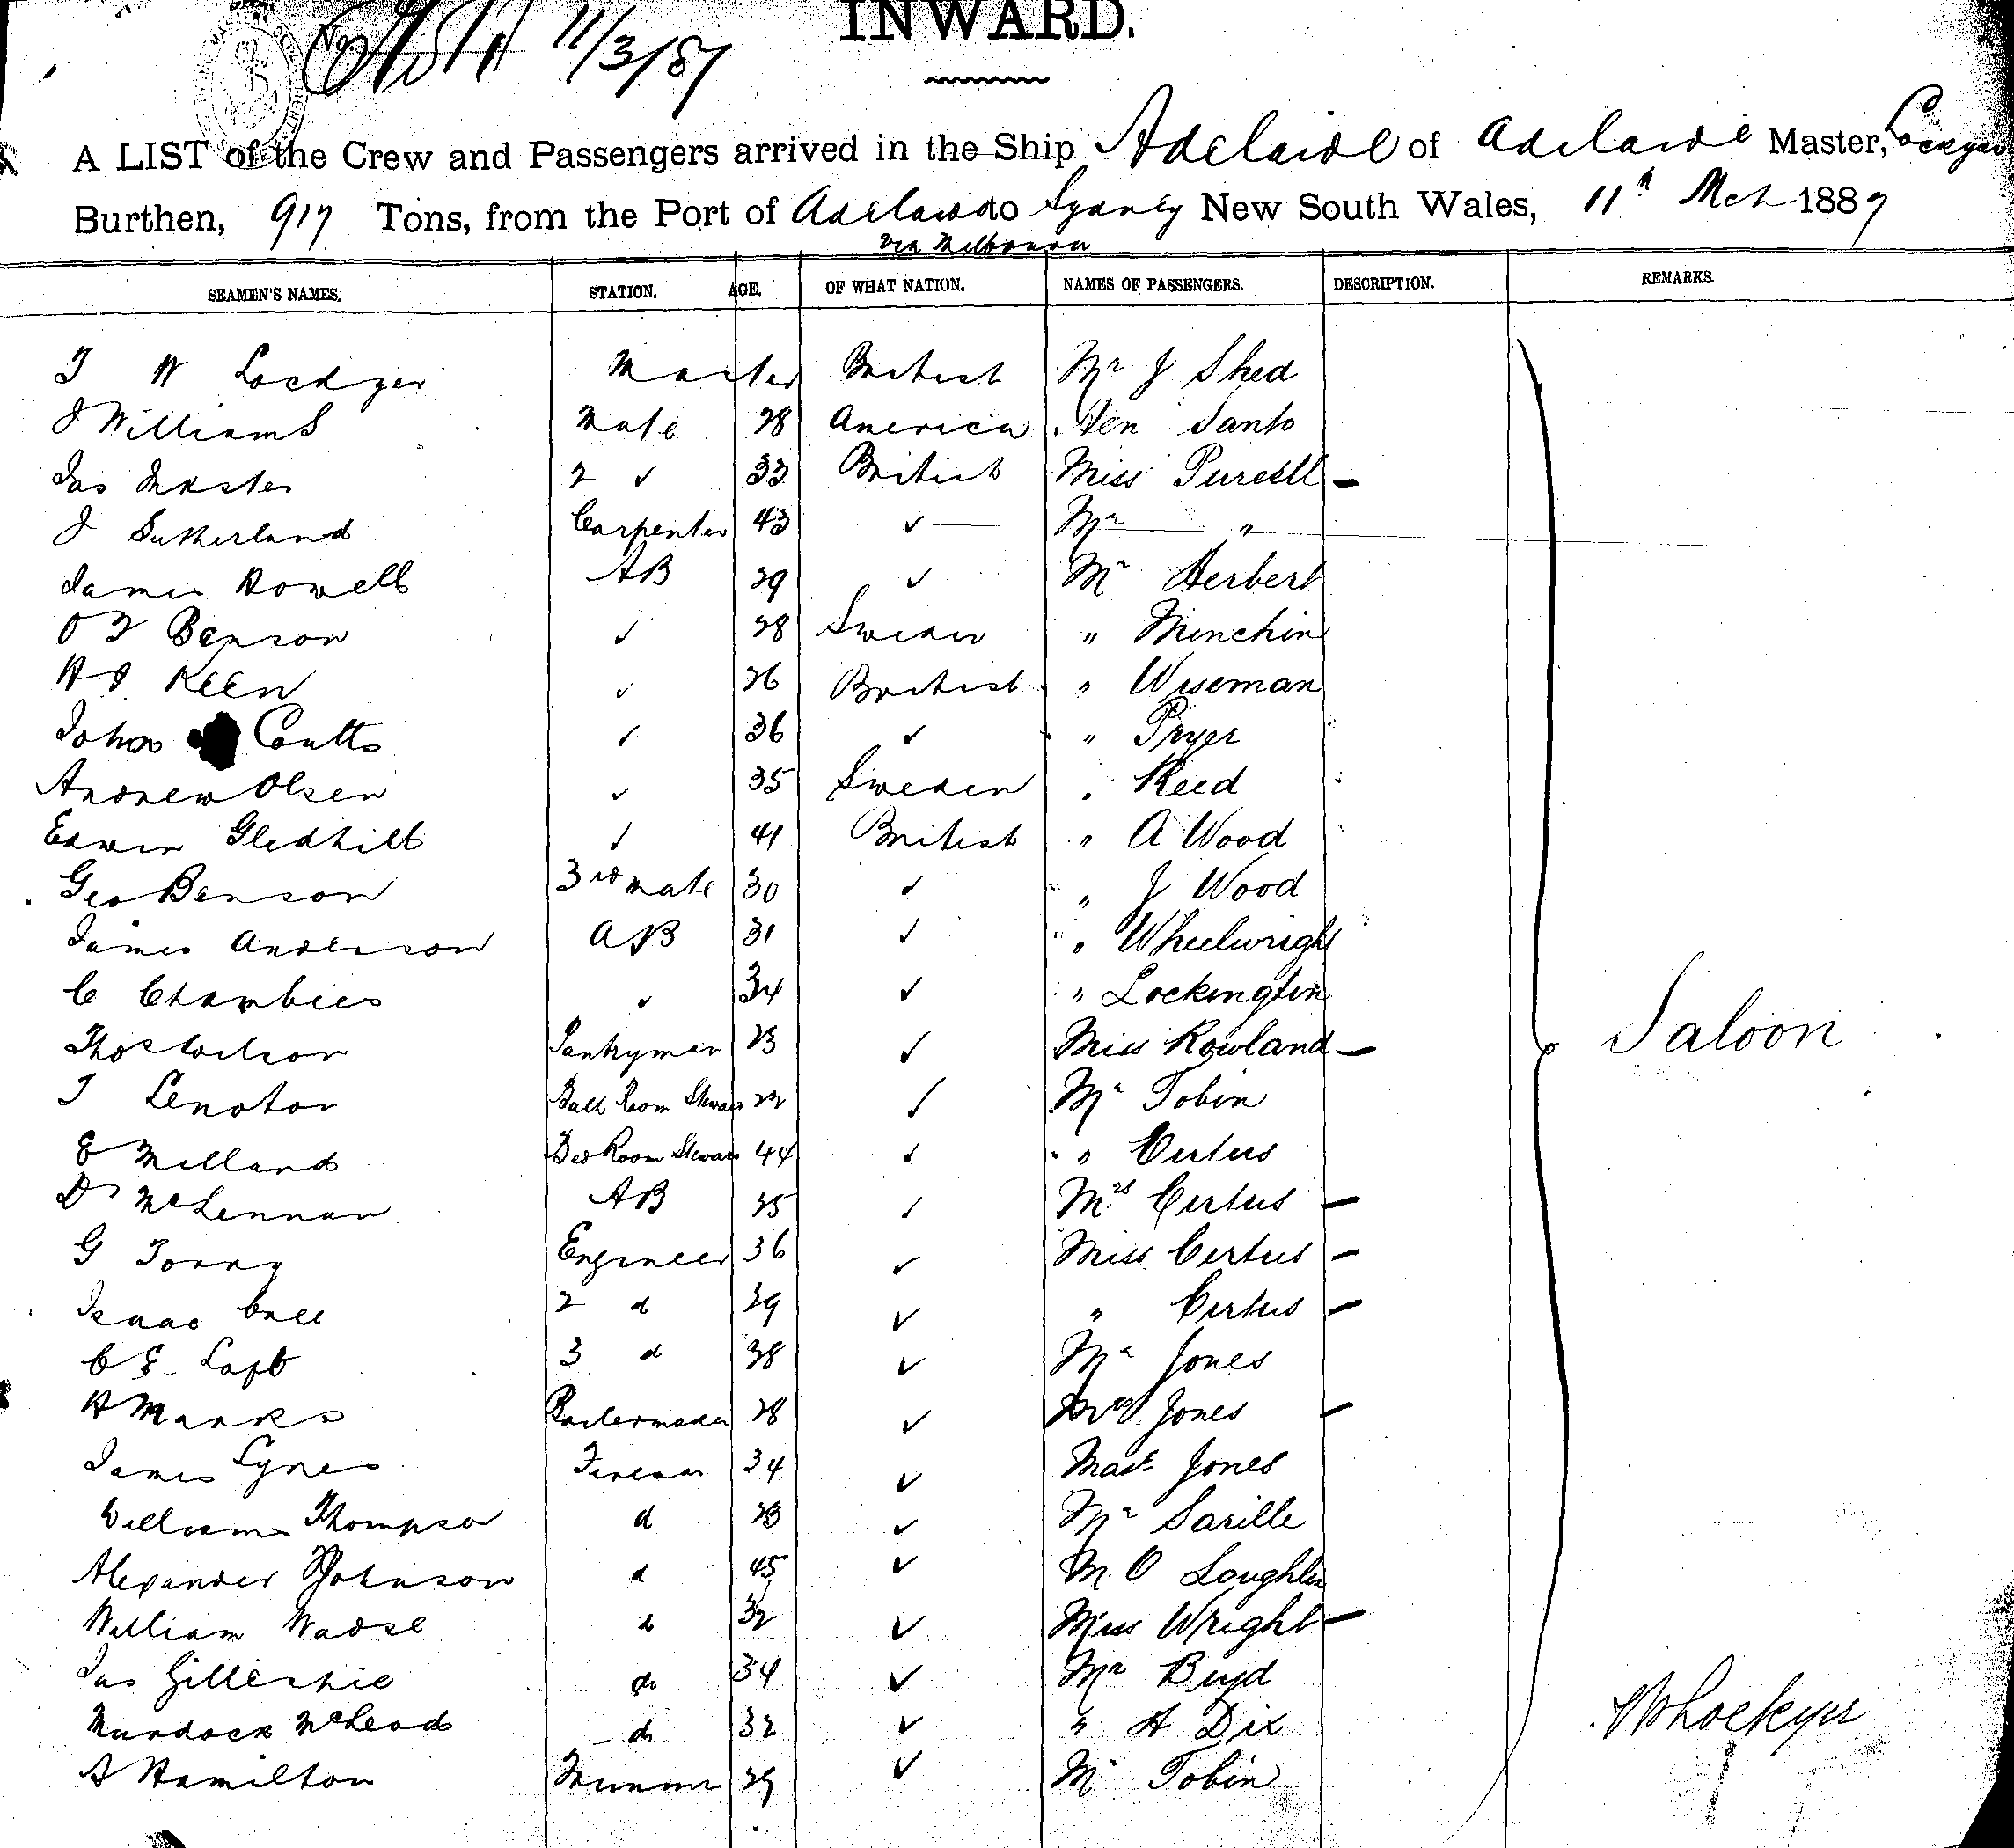 INWARD.
11/3/87
A LIST of the Crew and Passengers arrived in the Ship Adelaide of Adelaide Master, Lockyer
Burthen, 917 Tons, from the Port of Adelaide to Sydney New South Wales, 11th Mch 1887
via Melbourne
SEAMEN'S NAMES. STATION. AGE. OF WHAT NATION. NAMES OF PASSENGERS. DESCRIPTION. REMARKS.
T W Lockyer Master British Mr J Shed
J Williams Mate 28 America Hen Santo
Jas Inkster 2 ✓ 33 British Miss Purcell —
J Sutherland Carpenter 43 ✓ Mr "
James Howell AB 29 ✓ Mr Herbert
O T Benson ✓ 28 Sweden " Minchin
H J Keen ✓ 26 British " Wiseman
John Coutts ✓ 36 ✓ " Pryer
Andrew Olsen ✓ 35 Sweden " Reed
Edwin Gledhill ✓ 41 British " A Wood
Geo Benson 3rd mate 30 ✓ " J Wood
James Anderson AB 31 ✓ " Wheelwright
C Chambies ✓ 34 ✓ " Lockington
Thos Wilson Pantryman 23 ✓ Miss Rowland —
Saloon
T Lenoton Bath Room Steward 22 ✓ Mr Tobin
E Melland Bed Room Steward 44 ✓ " Certus
D McLennan AB 25 ✓ Mrs Certus —
G Torry Engineer 36 ✓ Miss Certus —
Isaac 2 d 29 ✓ " Certus —
C E Loft 3 d 38 ✓ Mr Jones
H Marks 28 ✓ Mrs Jones —
James Lynes Fireman 34 ✓ Mast. Jones
William Thompson d 23 ✓ Mr Saville
Alexander Johnson d 45 ✓ M O Loughlin
William Wadse d 32 ✓ Miss Wright —
Jas Gillespie do 34 ✓ Mr Boyd
Murdock McLeod do 32 ✓ " A Dix
WLockyer
A Hamilton Trimmer 29 ✓ Mr Tobin